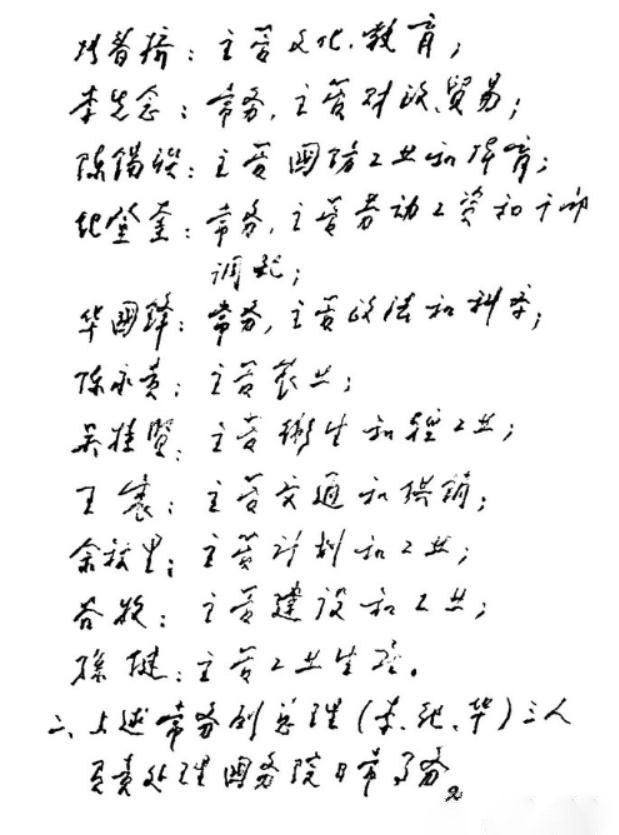 张春桥：主管文化、教育；
李先念：常务，主管财政、貿易；
陈锡联：主管國防工业和体育；
纪登奎：常务，主管劳动工资和干部
调配；
华國鋒：常务，主管政法和科学；
陈永贵：主管农业；
吴桂賢：主管衛生和轻工业；
王震：主管交通和供销；
余秋里：主管计划和工业；
谷牧：主管建设和工业；
孫健：主管工业生产。
二、上述常务付总理（李、纪、华）三人
负责处理國务院日常事务。